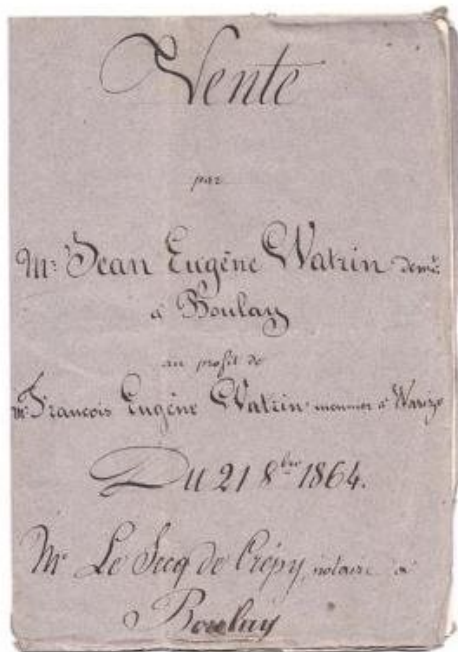 Vente
par
Mr. Jean Eugène Watrin demt.
à Boulay
au profit de
Mr. François Eugène Watrin meunier à Warize
Du 21 8bre 1864.
Me Le Secq de Crépy, notaire à
Boulay